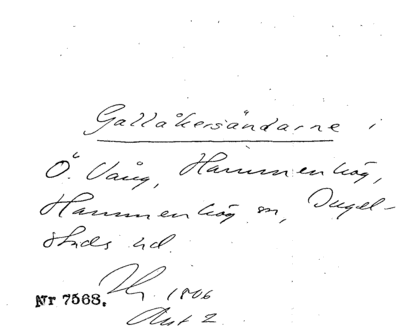 Gallåkersändarne i
Ö. Vång, Hammenhög,
Hammenhög sn, Ingel-
stads hd.
Nr 7568. 1806
Akt 2